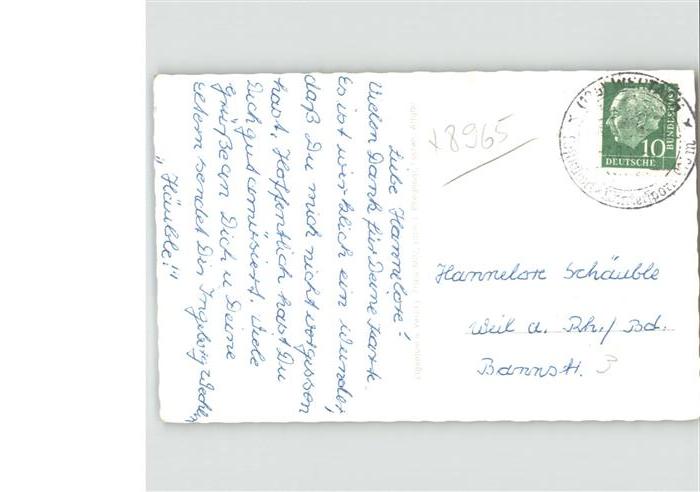 Liebe Hannelore!
Vielen Dank für Deine Karte.
Es ist wirklich ein Wunder,
daß Du mich nicht vergessen
hast. Hoffentlich hast Du
Dich gut amüsiert. Viele
Grüße an Dich u Deine
Eltern sendet Dir Ingeborg
"Häuble!"
x8965
10
DEUTSCHE
BUNDESPOST
Hannelore Schäuble
Weil a. Rh./Bd.
Bannstr. 3